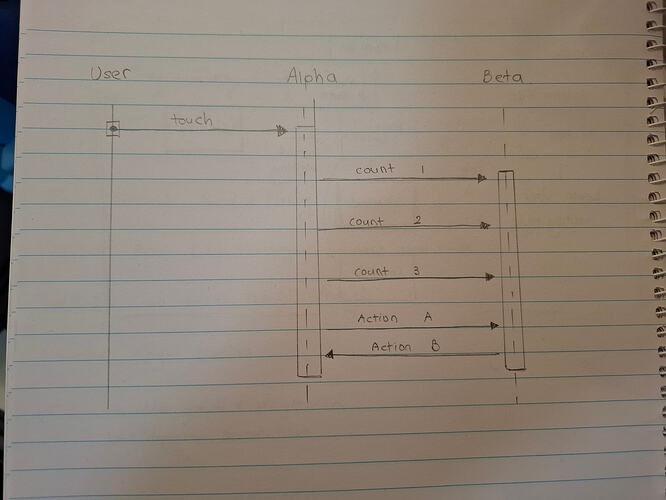 User Alpha Beta
touch
count 1
count 2
count 3
Action A
Action B